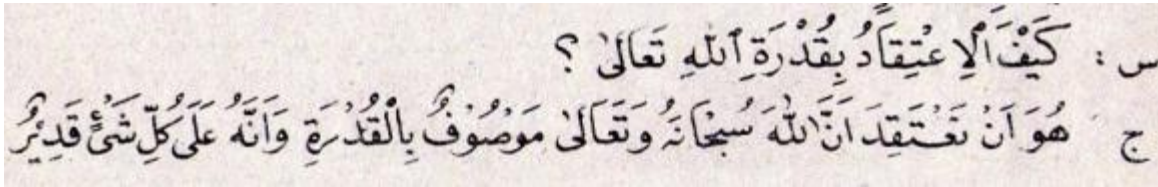 س : كَيْفَ الْاِعْتِقَادُ بِقُدْرَةِ اللهِ تَعَالٰى ؟
ج هُوَ اَنْ نَعْتَقِدَ اَنَّ اللهَ سُبْحَانَهُ وَتَعَالٰى مَوْصُوْفٌ بِالْقُدْرَةِ وَاَنَّهُ عَلَى كُلِّ شَىْءٍ قَدِيْرٌ